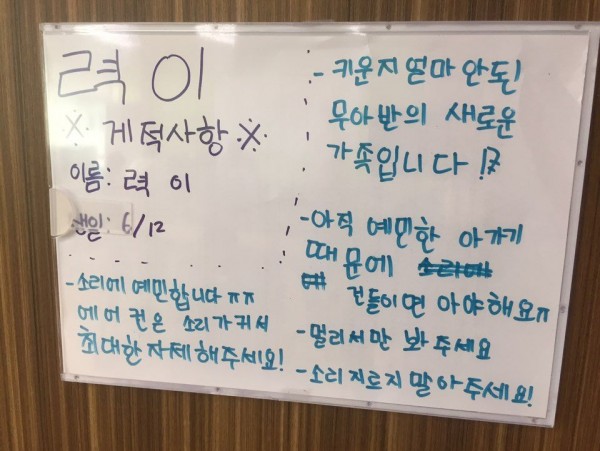 력이
※게적사항※
이름: 력이
생일: 6/12
-소리에 예민합니다ㅠㅠ
에어컨은 소리가커서
최대한자제해주세요!
-키운지얼마안돈!
무아반의 새로운
가족입니다!
-아직 예민한 아가기
때문에
건들이면 아야해요ㅠ
-멀리서만 봐주세요
-소리지르지말아주세요!